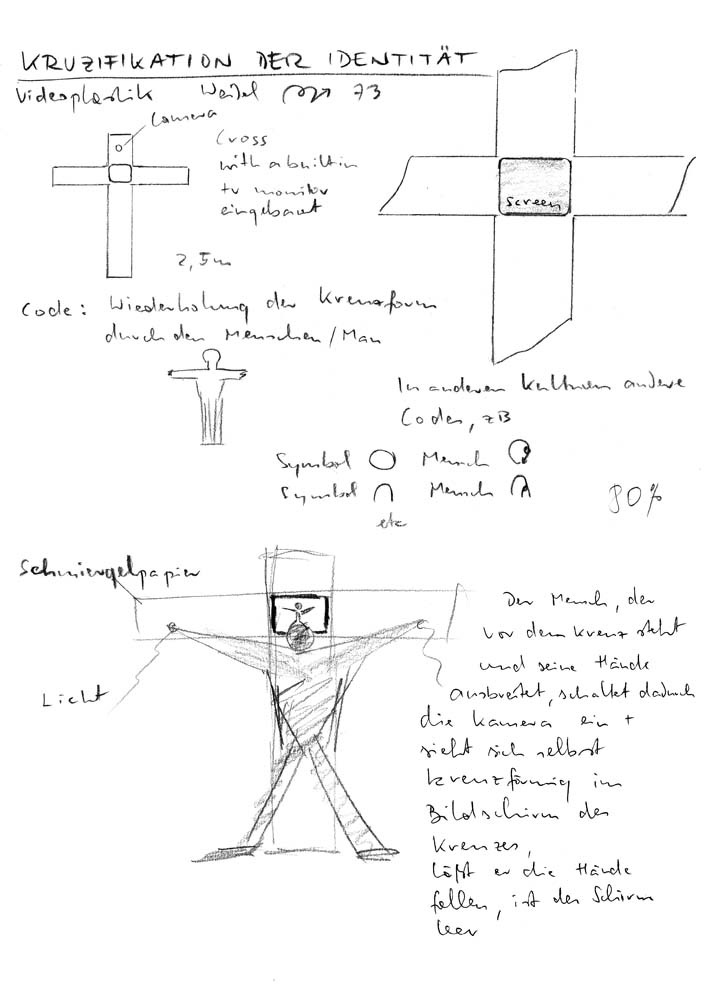 KRUZIFIKATION DER IDENTITÄT
Videoplastik Weibel 73
Camera
Cross
with a built in
tv monitor
eingebaut
screen
2,5m
Code: Wiederholung der Kreuzform
durch den Menschen/Man
In anderen Kulturen andere
Codes, zB
Symbol Mensch
Symbol Mensch
etc
80%
Schmiergelpapier
Licht
Der Mensch, der
vor dem Kreuz steht
und seine Hände
ausbreitet, schaltet dadurch
die Kamera ein +
sieht sich selbst
kreuzförmig im
Bildschirm des
Kreuzes,
läßt er die Hände
fallen, ist der Schirm
leer